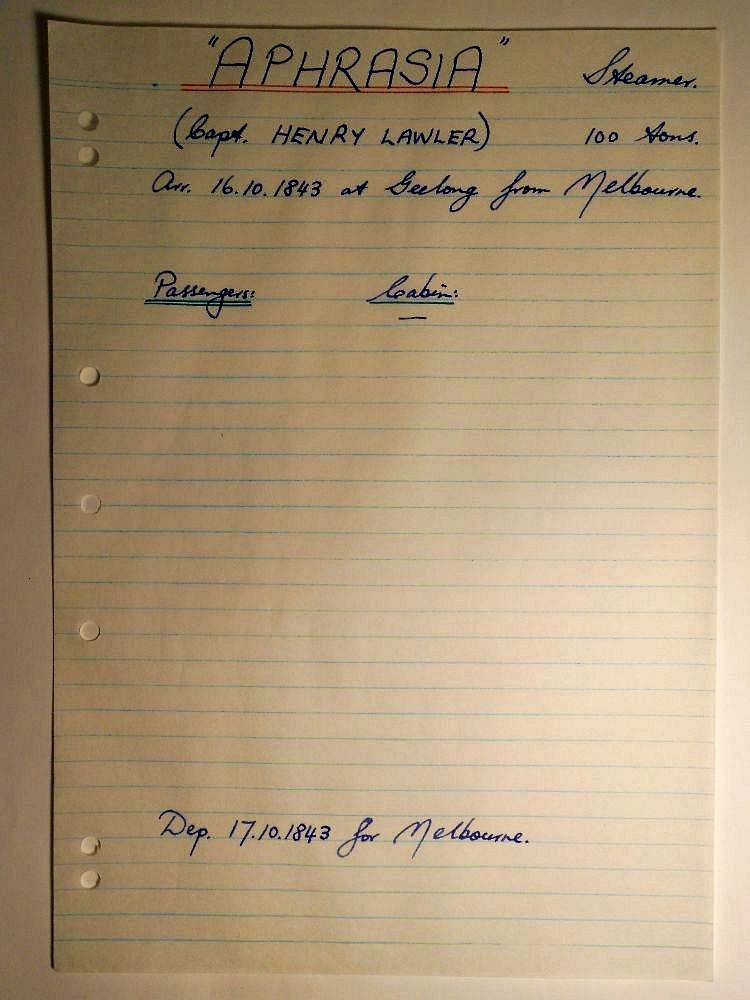 "APHRASIA" Steamer.
(Capt. HENRY LAWLER) 100 tons.
Arr. 16.10.1843 at Geelong from Melbourne.
Passengers: Cabin:
—
Dep. 17.10.1843 for Melbourne.